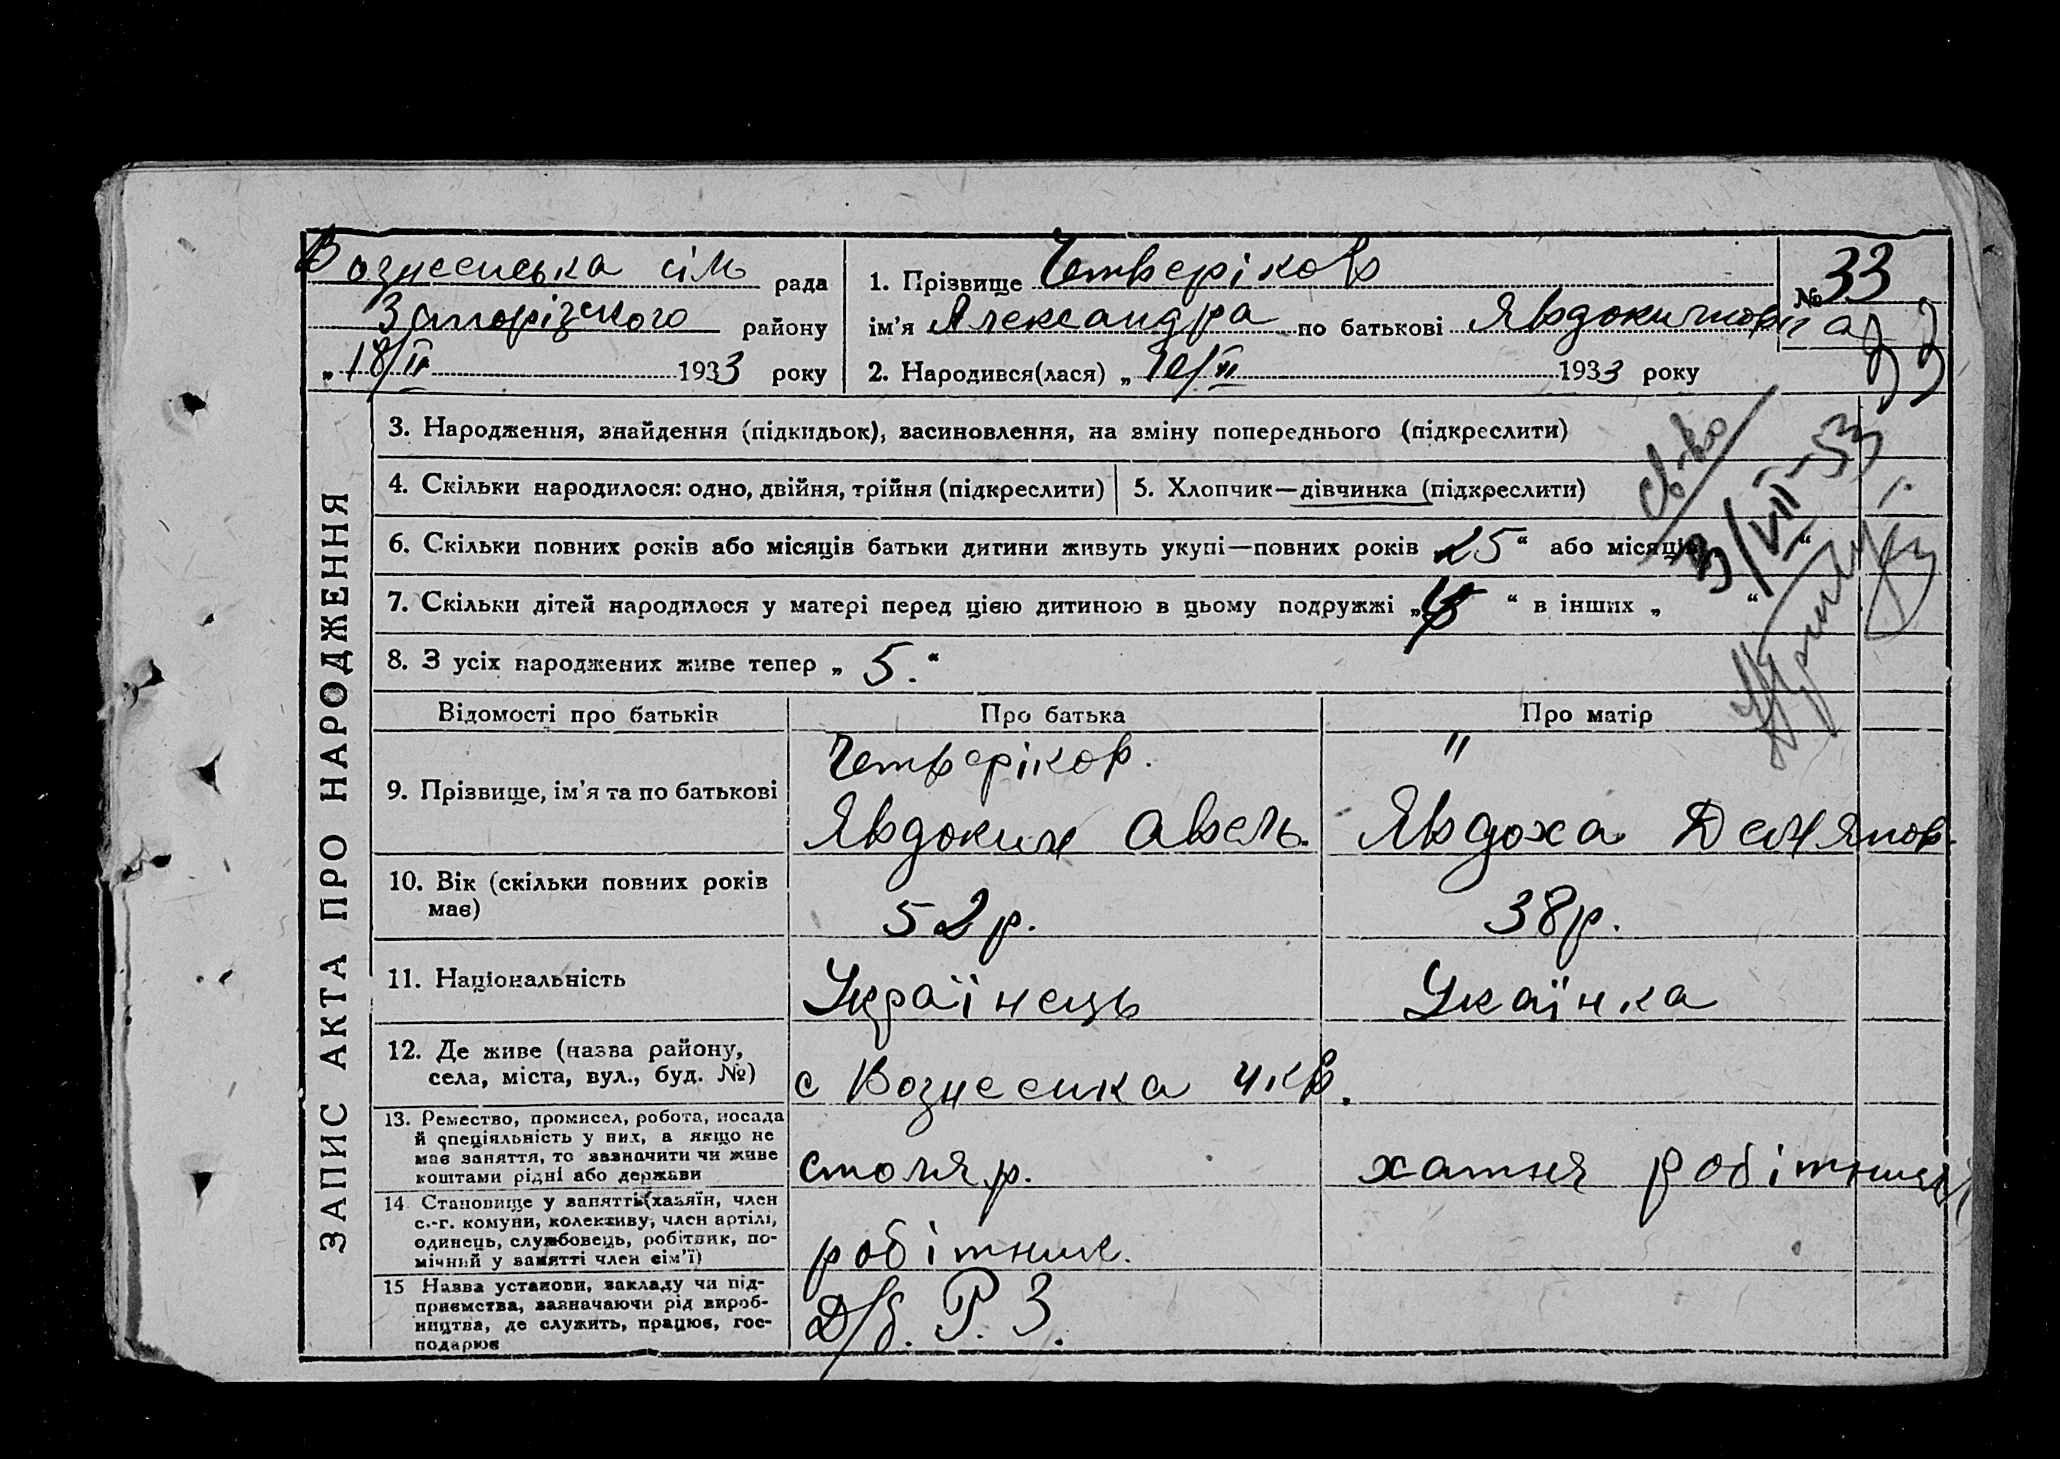 Вознесенська сіль рада
Запорізского району
„ 18/II 1933 року
1. Прізвище Четверіков
ім'я Александра по батькові Явдокимовна
2. Народився(лася) „ 10/II 1933 року
№ 33
ЗАПИС АКТА ПРО НАРОДЖЕННЯ
3. Народження, знайдення (підкидьок), засиновлення, на зміну попереднього (підкреслити)
4. Скільки народилося: одно, двійня, трійня (підкреслити)
5. Хлопчик—дівчинка (підкреслити)
св-во
3/VII-53
6. Скільки повних років або місяців батьки дитини живуть укупі—повних років „ 25 “ або місяців “
7. Скільки дітей народилося у матері перед цією дитиною в цьому подружжі „ “ в інших „ “
8. З усіх народжених живе тепер „ 5. “
Відомості про батьків Про батька Про матір
9. Прізвище, ім'я та по батькові
Четверіков. "
Явдоким Авель. Явдоха Демянов.
10. Вік (скільки повних років
має)
52 р. 38 р.
11. Національність
Українець Укаїнка
12. Де живе (назва району,
села, міста, вул., буд. №)
с Вознесенка 4 кв.
13. Ремество, промисел, робота, посада
й спеціяльність у них, а якщо не
має заняття, то зазначити чи живе
коштами рідні або держави
столяр. хатня робітниця
14. Становище у занятті (хазяїн, член
с.-г. комуни, колективу, член артілі,
одинець, службовець, робітник, по-
мічний у занятті член сім'ї)
робітник.
15 Назва установи, закладу чи під-
приємства, зазначаючи рід вироб-
ництва, де служить, працює, гос-
подарює
Д/б. Р. З.